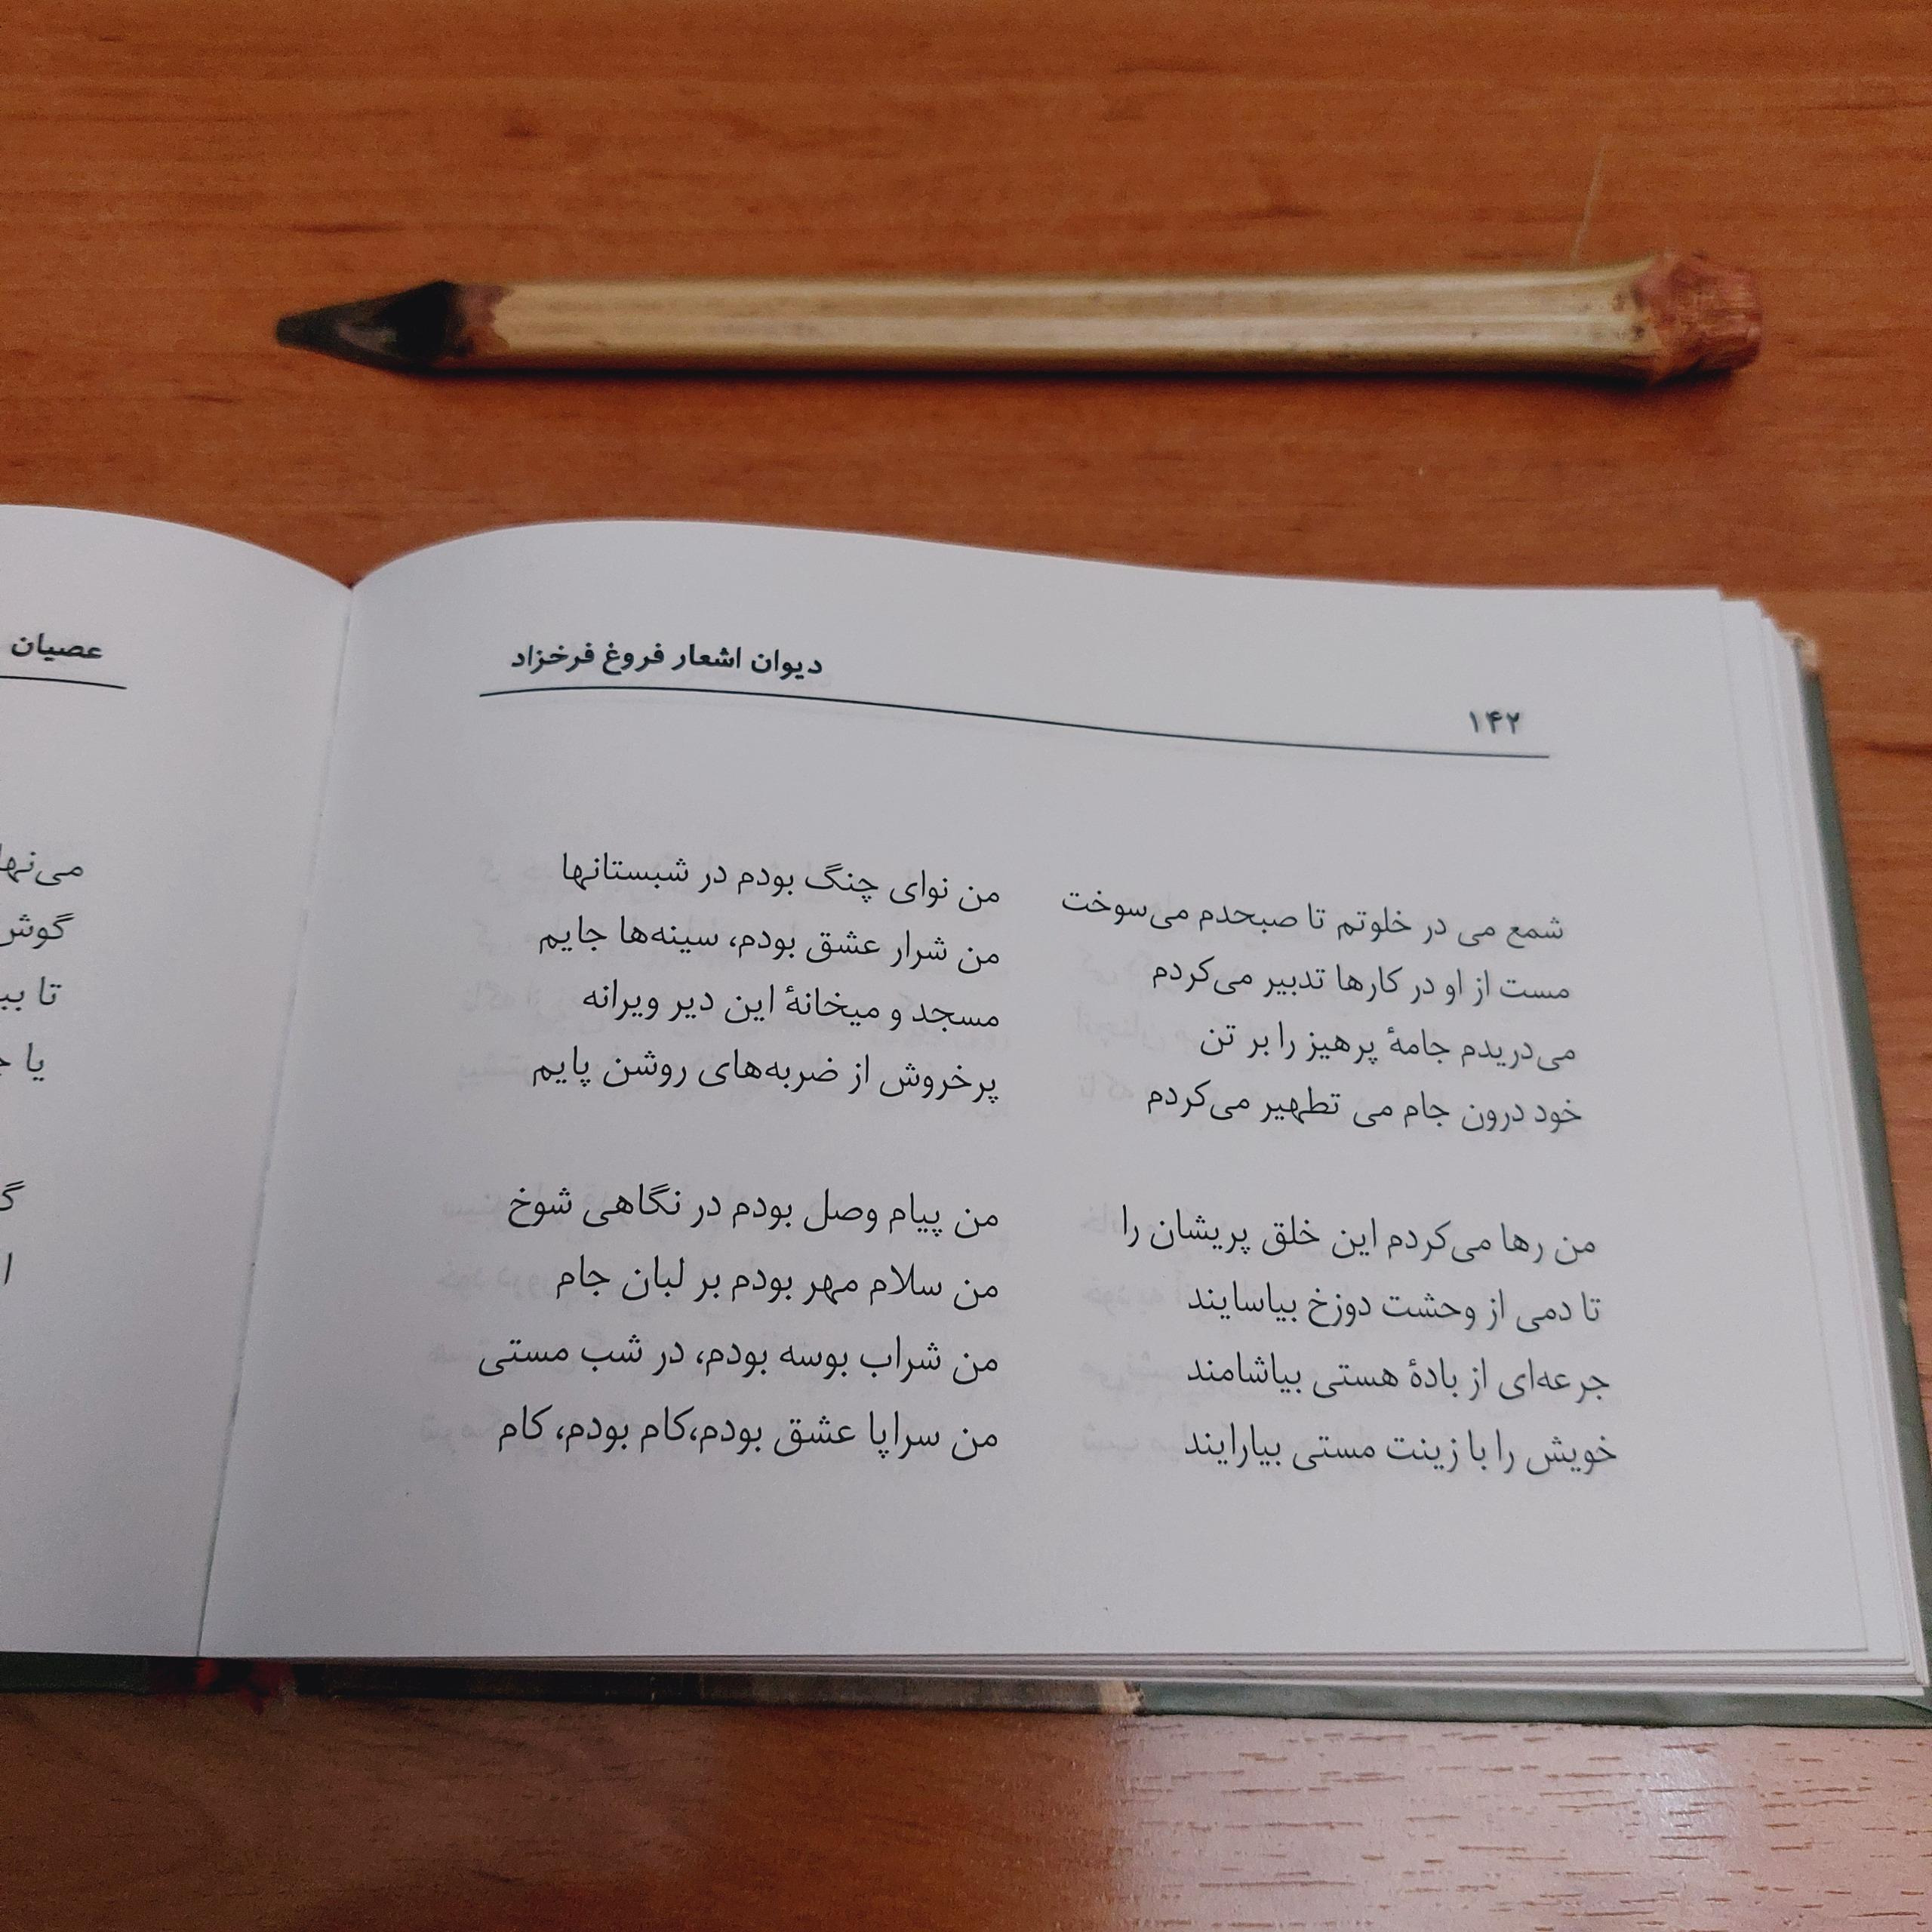 دیوان اشعار فروغ فرخزاد
۱۴۲
شمع می در خلوتم تا صبحدم می‌سوخت
مست از او در کارها تدبیر می‌کردم
می‌دریدم جامهٔ پرهیز را بر تن
خود درون جام می تطهیر می‌کردم
من رها می‌کردم این خلق پریشان را
تا دمی از وحشت دوزخ بیاسایند
جرعه‌ای از بادهٔ هستی بیاشامند
خویش را با زینت مستی بیارایند
من نوای چنگ بودم در شبستانها
من شرار عشق بودم، سینه‌ها جایم
مسجد و میخانهٔ این دیر ویرانه
پرخروش از ضربه‌های روشن پایم
من پیام وصل بودم در نگاهی شوخ
من سلام مهر بودم بر لبان جام
من شراب بوسه بودم، در شب مستی
من سراپا عشق بودم،کام بودم، کام
عصیان
گوش
تا
یا